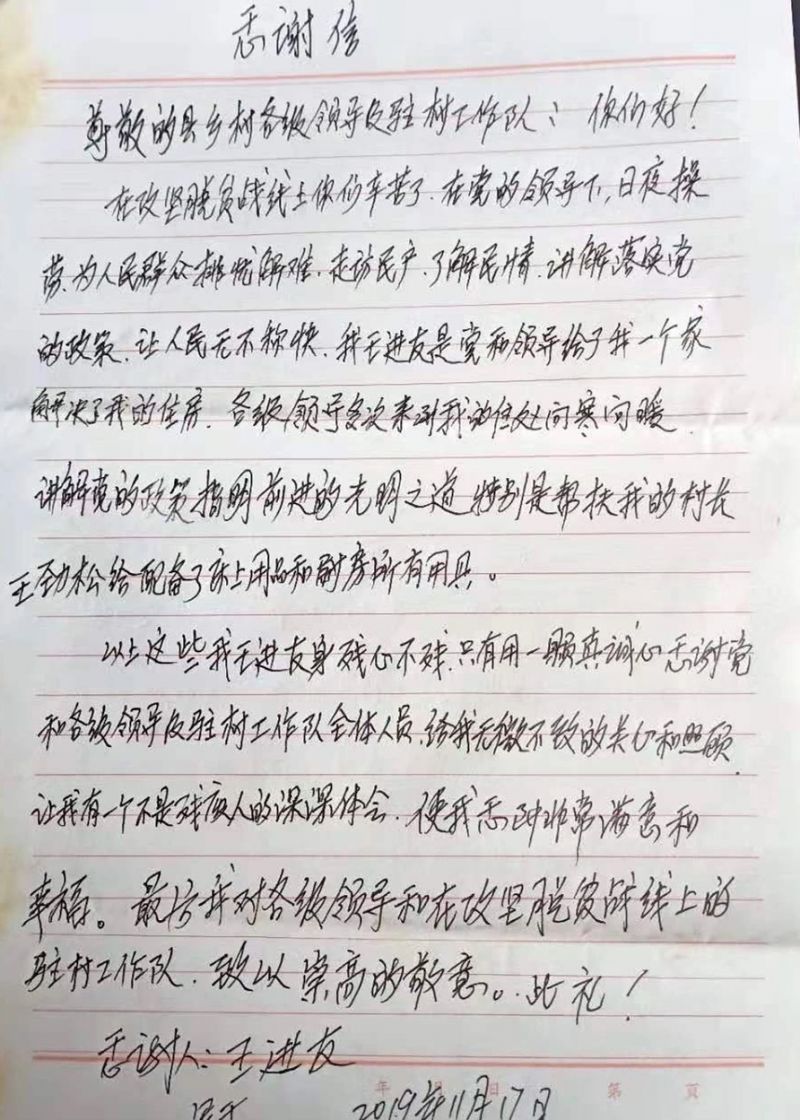 感谢信
尊敬的县乡村各级领导及驻村工作队：你们好！
在攻坚脱贫战线上你们辛苦了.在党的领导下,日夜操
劳.为人民群众排忧解难.走访民户.了解民情.讲解落实党
的政策.让人民无不称快.我王进友是党和领导给了我一个家
解决了我的住房.各级领导多次来到我的住处问寒问暖.
讲解党的政策指明前进的光明之道 特别是帮扶我的村长
王劲松给配备了床上用品和厨房所有用具。
以上这些我王进友身残心不残.只有用一颗真诚心感谢党
和各级领导及驻村工作队全体人员.给我无微不致的关心和照顾.
让我有一个不是残疾人的深深体会.使我感到非常满意和
幸福。最后我对各级领导和在攻坚脱贫战线上的
驻村工作队.致以崇高的敬意。此礼！
感谢人:王进友
2019年11月17日
年 月 日 第 页